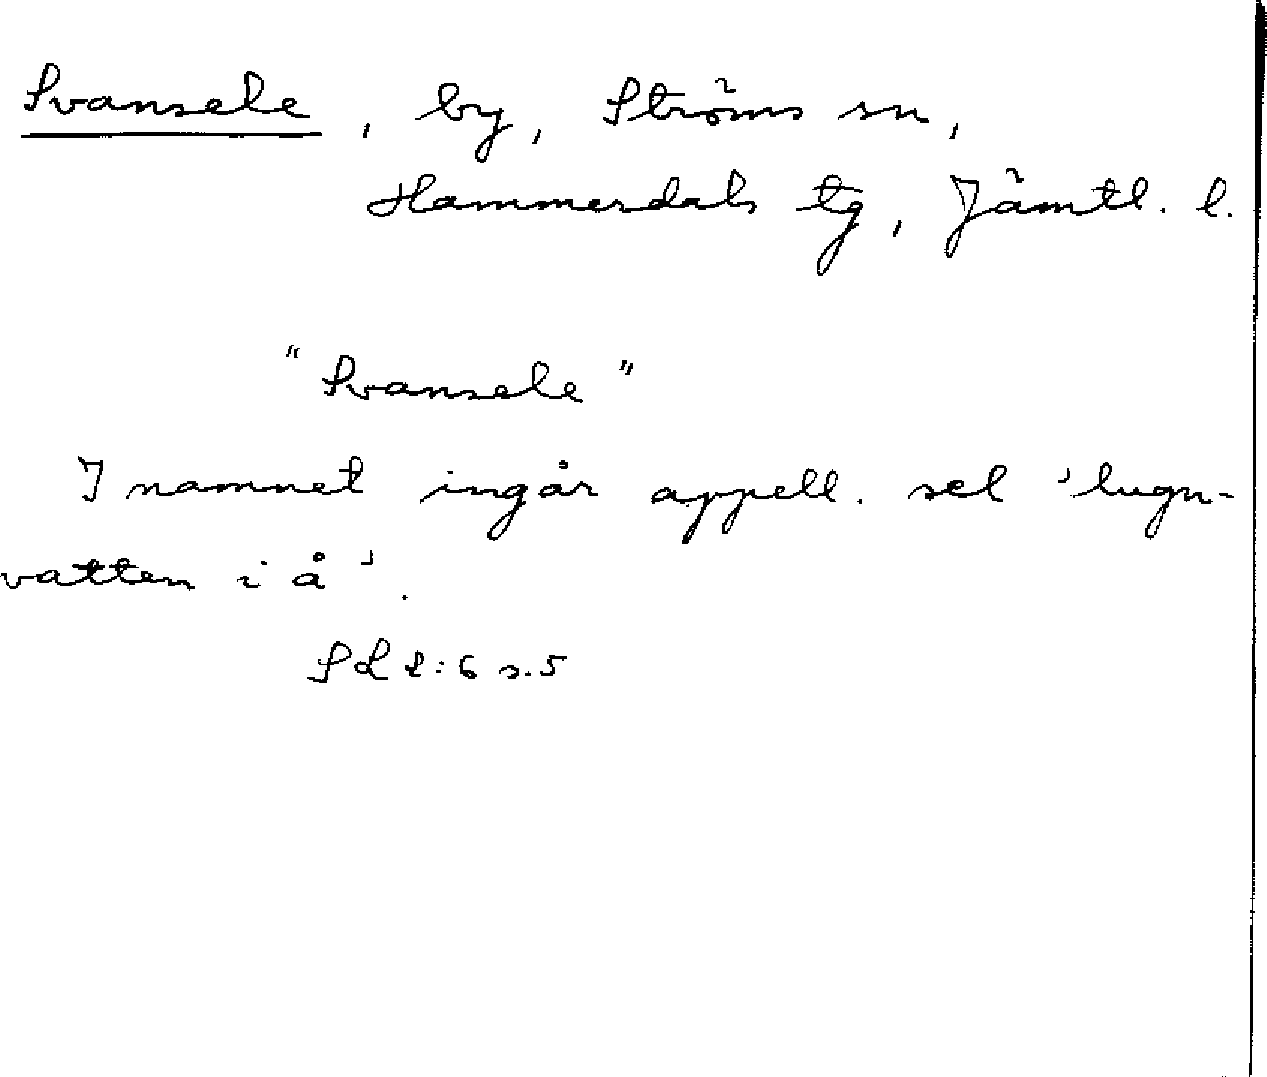 Svansele, by, Ströms sn,
Hammerdals tg, Jämtl. l.
"Svansele"
I namnet ingår appell. sel 'lugn-
vatten i å'.
SL l:6 s.5